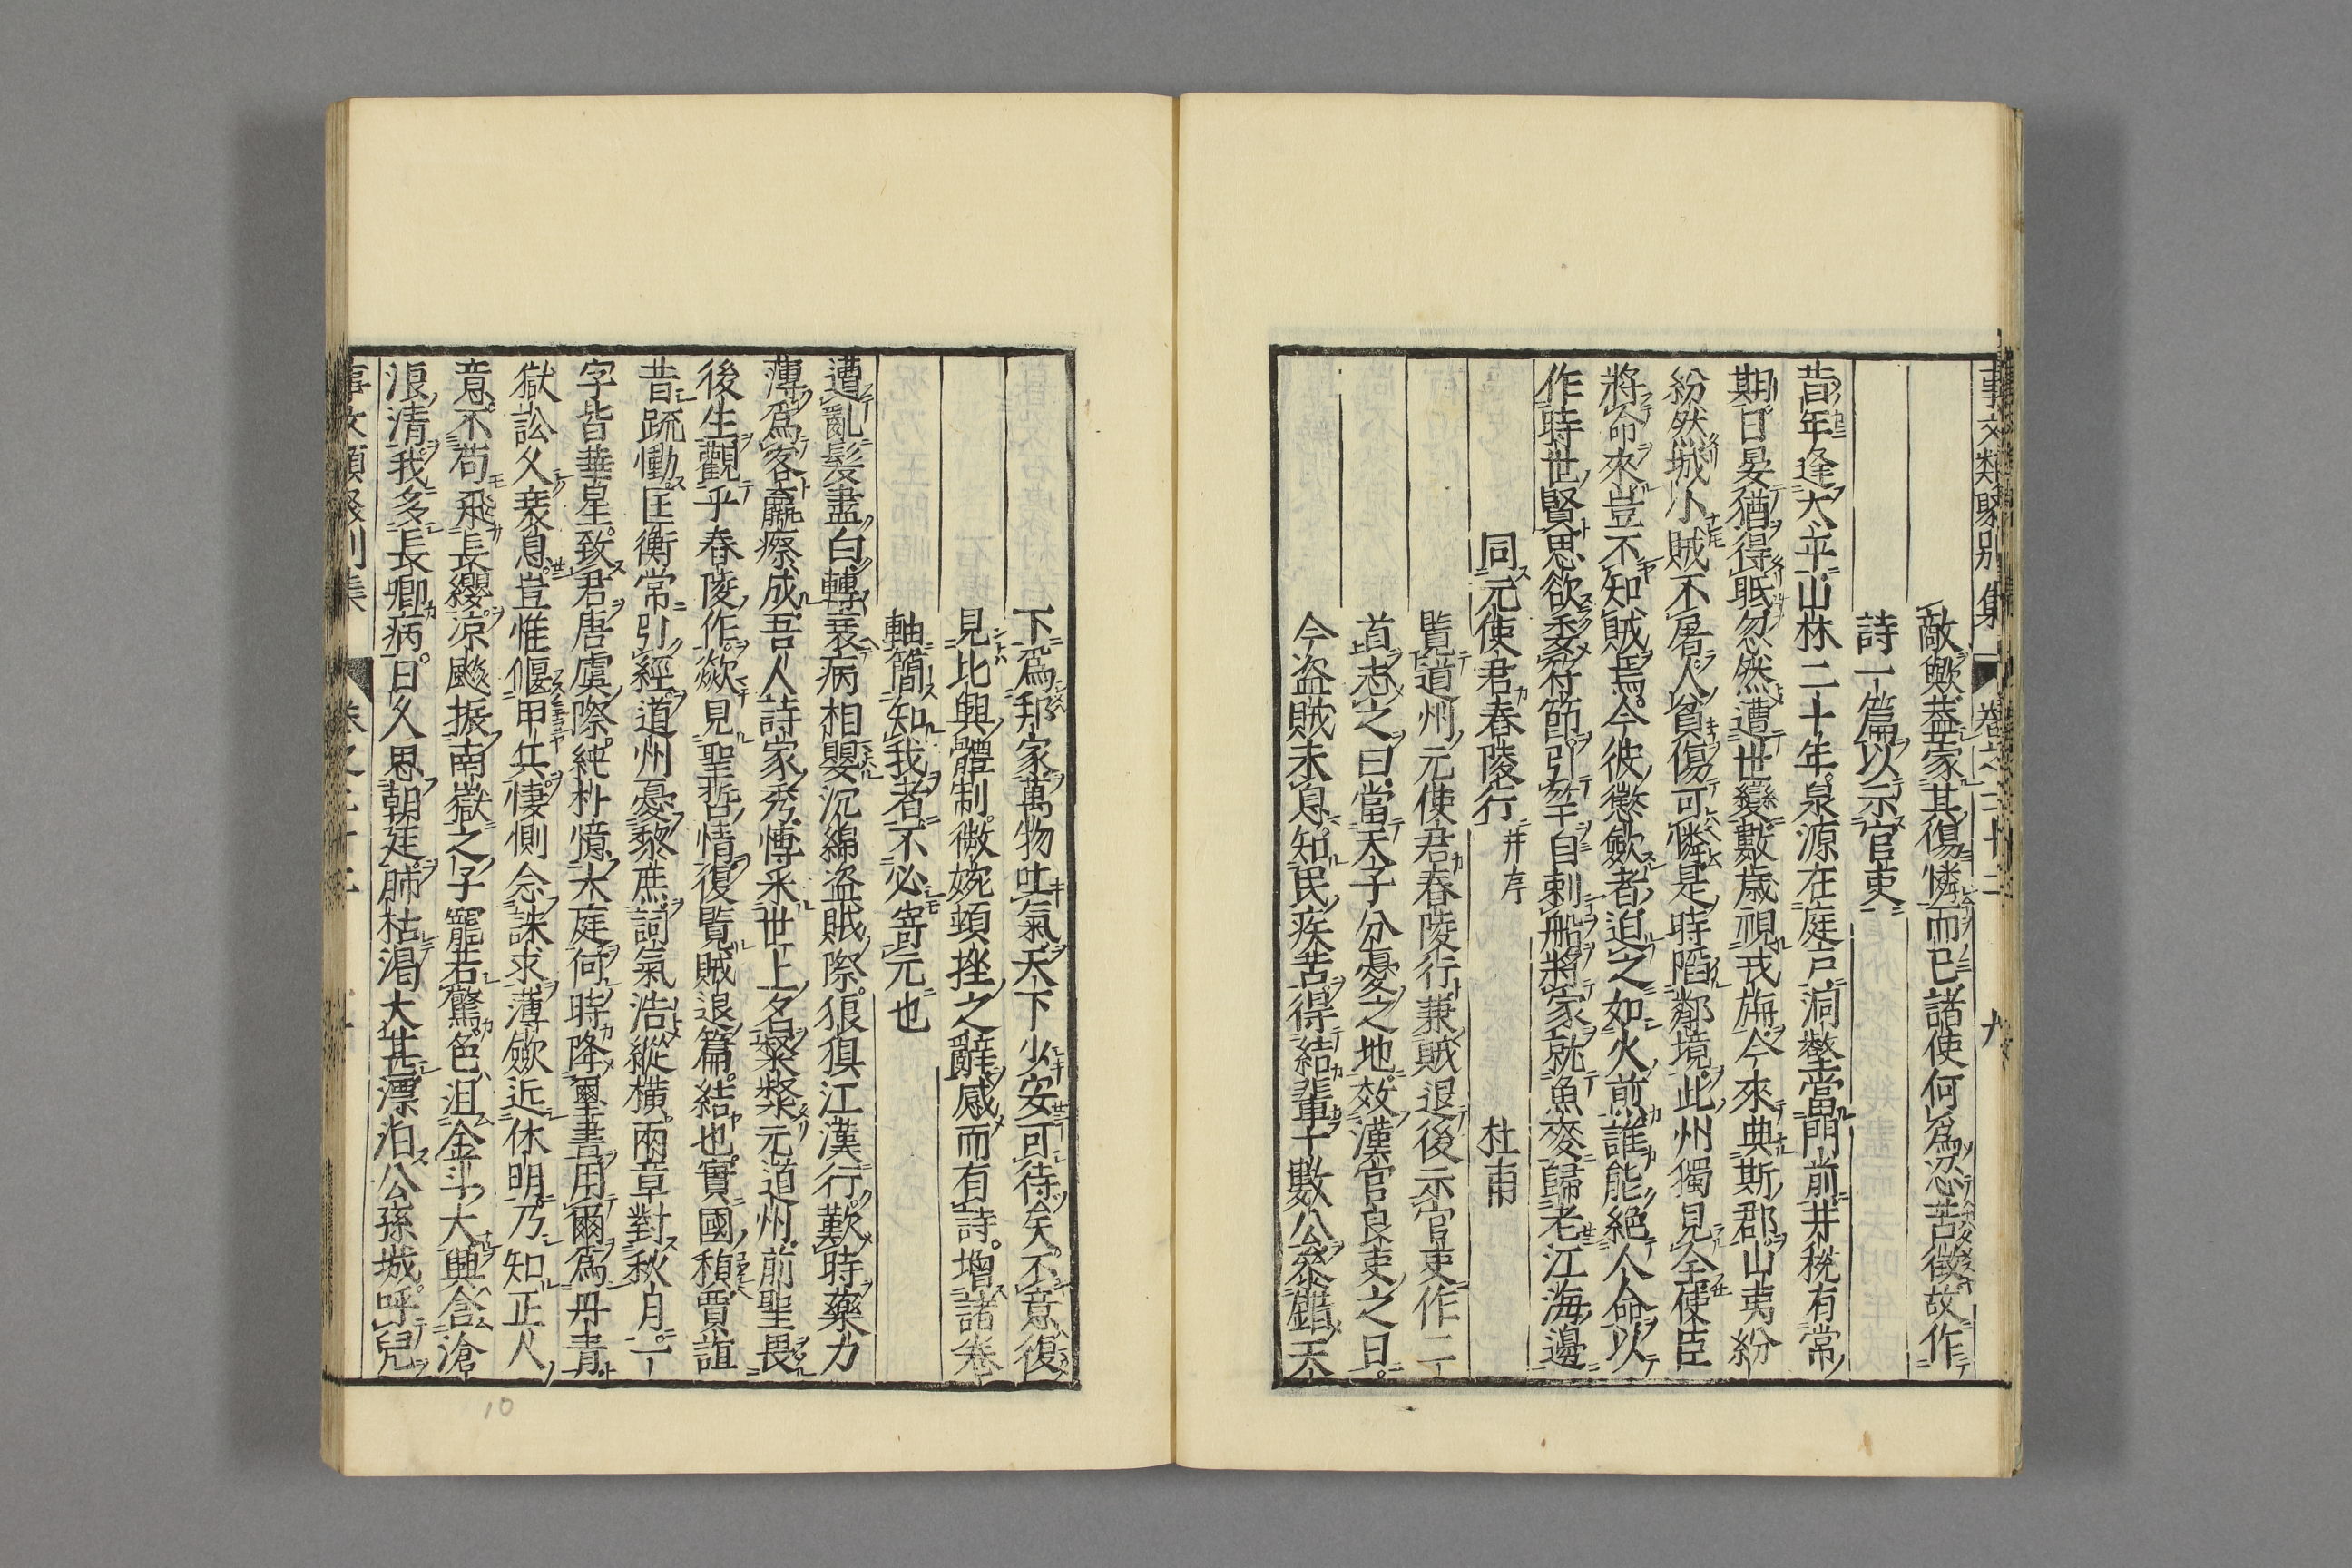 事文類聚別集 卷之二十二 九
敵歟葢家其傷憐而已諸使何爲忍苦徵故作
詩一篇以示官吏
昔年逢大平山林二十年泉源在庭戸洞壑當門前井稅有常
期日晏猶得眠忽然遭世變數歳視戎旃今來典斯郡山夷紛
紛然城小賊不屠人貧傷可憐是時陷鄰境此州獨見全使臣
將命來豈不知賊焉今彼徵歛者迫之如火煎誰能絶人命以
作時世賢思欲委符節引竿自刺船將家就魚麥歸老江海邊
同元使君春陵行 并序 杜甫
覧道州元使君春陵行兼賊退後示官吏作二
首志之曰當天子分憂之地效漢官良吏之日
今盗賊未息知民疾苦得結輩十數公叅錯天
下爲邦家萬物吐氣天下少安可待矣不意復
見比興體制微婉頓挫之辭感而有詩增諸卷
軸簡知我者不必寄元也
遭亂髮盡白轉衰病相嬰沉綿盗賊際狼狽江漢行歎時藥力
薄爲客羸瘵成吾人詩家秀博采世上名粲粲元道州前聖畏
後生觀乎春陵作歘見聖哲情復覧賊退篇結也實國楨賈誼
昔䟽慟匡衡常引經道州憂黎庶詞氣浩縱橫兩章對秋月一
字皆華星致君唐虞際純朴憶大庭何時降璽書用爾爲丹青
獄訟久衰息豈惟偃甲兵悽惻念誅求薄歛近休明乃知正人
意不苟飛長纓凉飈振南嶽之子寵若驚色沮金斗大興含滄
浪清我多長卿病日久思朝廷肺枯渇大甚漂泊公孫城呼兒
事文類聚別集 卷之二十二